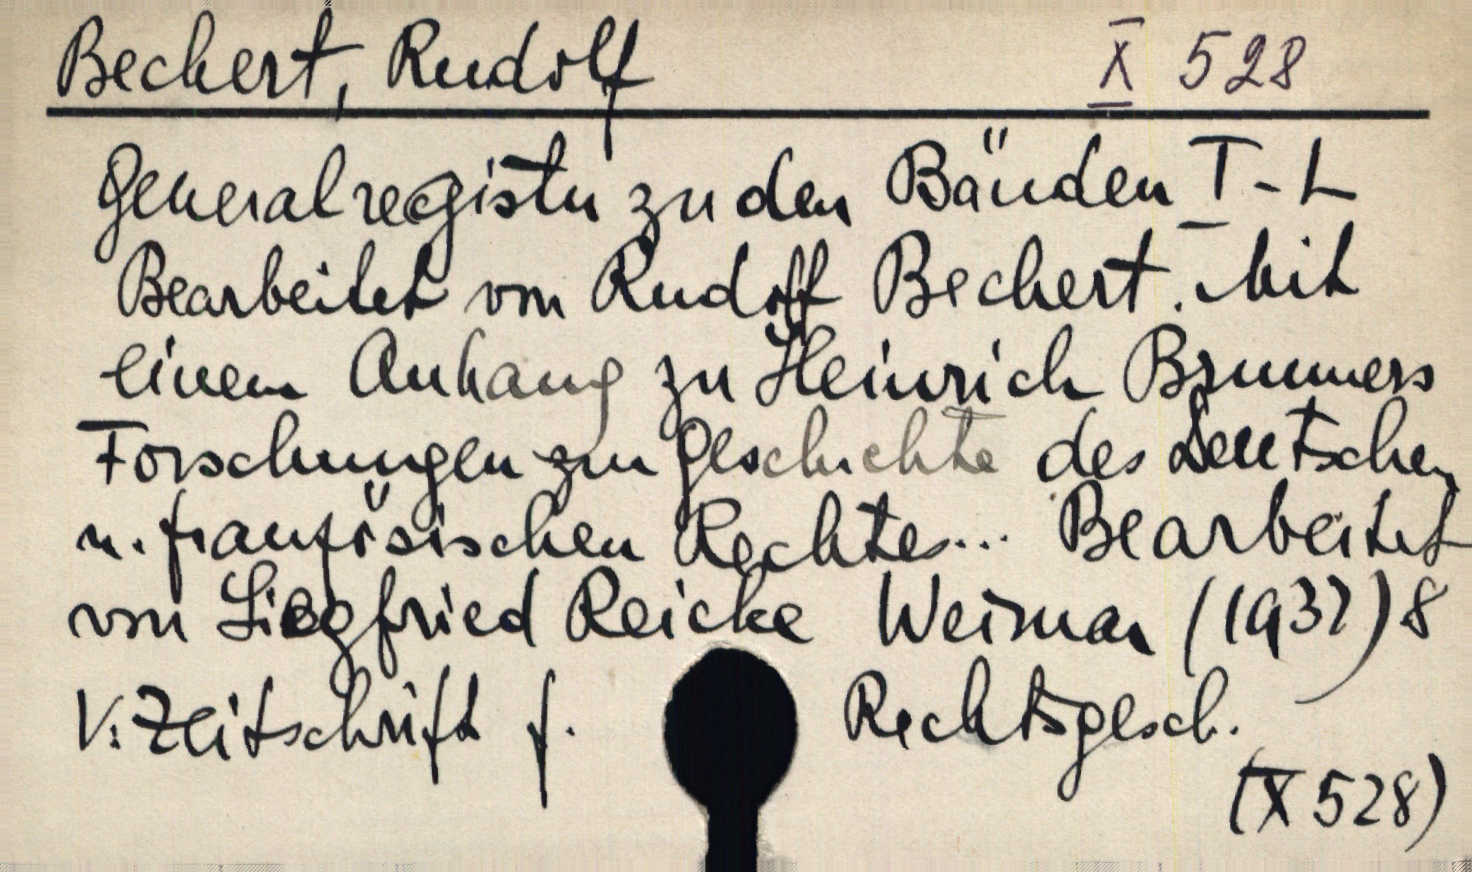 Bechert, Rudolf X 528
Generalregister zu den Bänden I-L
Bearbeitet von Rudolf Bechert. Mit
einem Anhang zu Heinrich Brunners
Forschungen zur Geschichte des Deutschen
u. französischen Rechtes... Bearbeitet
von Siegfried Reicke Weimar (1932) 8
V: Zeitschrift f. Rechtsgesch.
(X 528)